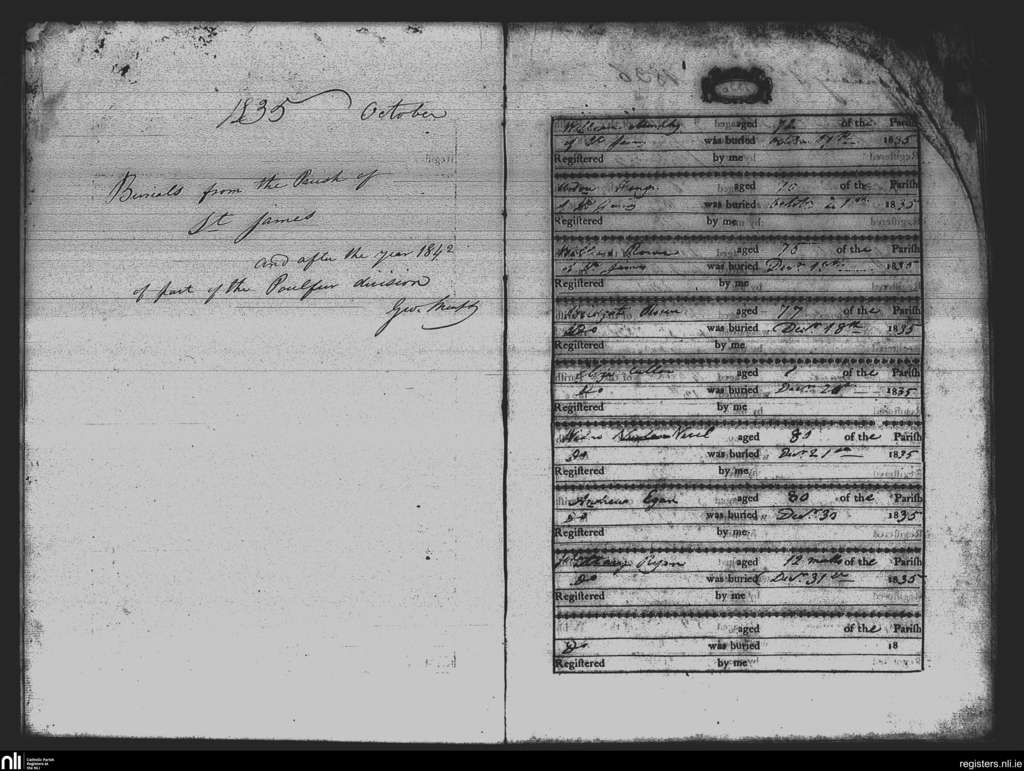 1835 October
Burials from the Parish of
St James
and after the year 1842
of part of the Poulfur division
Geo. Murphy
William Murphy aged 72 of the Parish
of St James was buried 1835
Registered by me
aged 70 of the Parish
of St James was buried October 21st 1835
Registered by me
William aged 75 of the Parish
of St James was buried Decr 1835
Registered by me
Margaret aged 77 of the Parish
Do was buried Decr 18th 1835
Registered by me
Eliza Cullen aged of the Parish
Do was buried Decr 1835
Registered by me
Widow aged 80 of the Parish
Do was buried Decr 21st 1835
Registered by me
Andrew Egan aged 80 of the Parish
Do was buried Decr 30 1835
Registered by me
Ryan aged 12 mths of the Parish
Do was buried Decr 31st 1835
Registered by me
aged of the Parish
Do was buried 18
Registered by me
nli Catholic Parish
Registers at
the NLI
registers.nli.ie